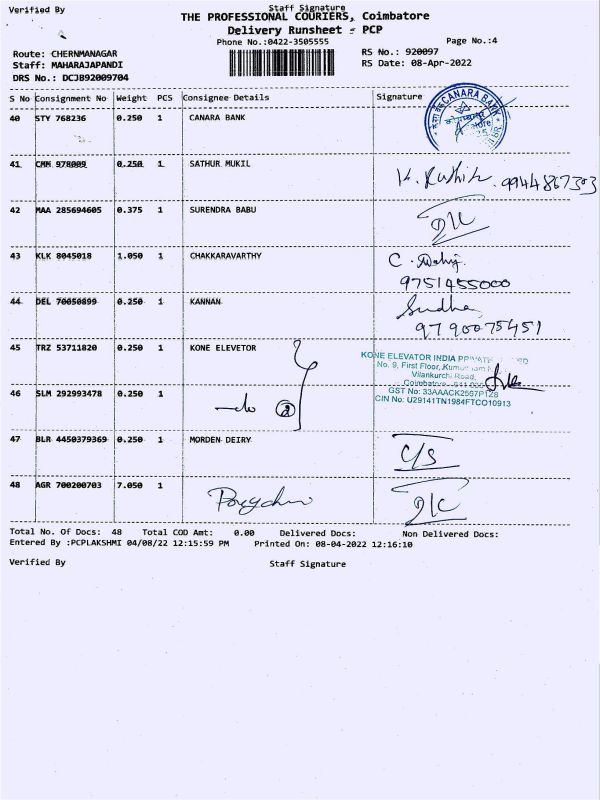 Verified By Staff Signature
THE PROFESSIONAL COURIERS, Coimbatore
Delivery Runsheet - PCP
Phone No.:0422-3505555 Page No.:4
Route: CHERNMANAGAR RS No.: 920097
Staff: MAHARAJAPANDI RS Date: 08-Apr-2022
DRS No.: DCJB92009704
S No Consignment No Weight PCS Consignee Details Signature
40 STY 768236 0.250 1 CANARA BANK CANARA BANK
41 CMM 978009 0.250 1 SATHUR MUKIL
9944867303
42 MAA 285694605 0.375 1 SURENDRA BABU
43 KLK 8045018 1.050 1 CHAKKARAVARTHY C.
9751455000
44 DEL 70050899 0.250 1 KANNAN Sudha
9790075451
45 TRZ 53711820 0.250 1 KONE ELEVETOR
KONE ELEVATOR INDIA PRIVATE
No. 9, First Floor,
Vilankurchi Road,
Coimbatore
GST No: 33AAACK2597P1Z8
CIN No: U29141TN1984FTC010913
46 SLM 292993478 0.250 1
-do 2
47 BLR 4450379369 0.250 1 MORDEN DEIRY C/S
48 AGR 700200703 7.050 1
Total No. Of Docs: 48 Total COD Amt: 0.00 Delivered Docs: Non Delivered Docs:
Entered By :PCPLAKSHMI 04/08/22 12:15:59 PM Printed On: 08-04-2022 12:16:10
Verified By Staff Signature